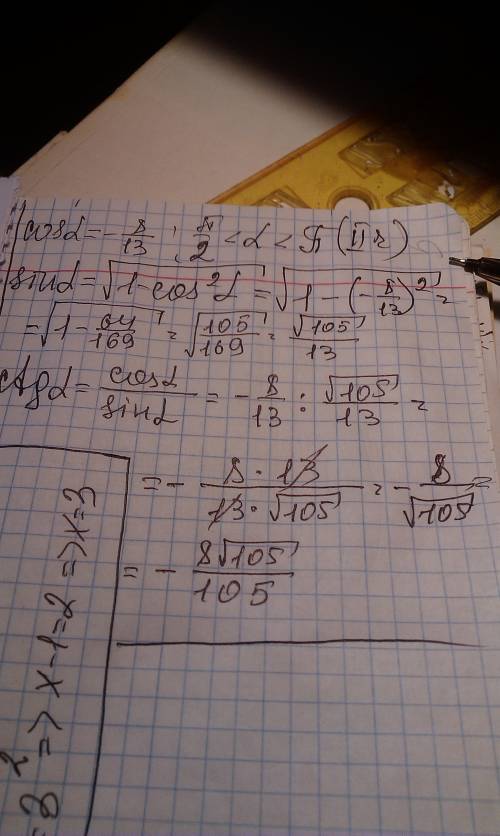 cosα = -8/13 ; π/2 < α < π (II ч)
sinα = √(1 - cos²α) = √(1 - (-8/13)²) =
= √(1 - 64/169) = √(105/169) = √105/13
ctgα = cosα/sinα = -8/13 : √105/13 =
= - (8 · 13)/(13 · √105) = - 8/√105 =
= - 8√105/105
3² => x-1=2 => x=3